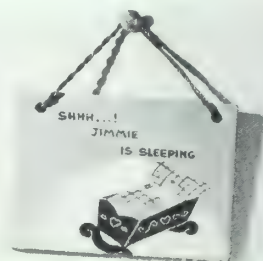 SHHH...!
JIMMIE
IS SLEEPING